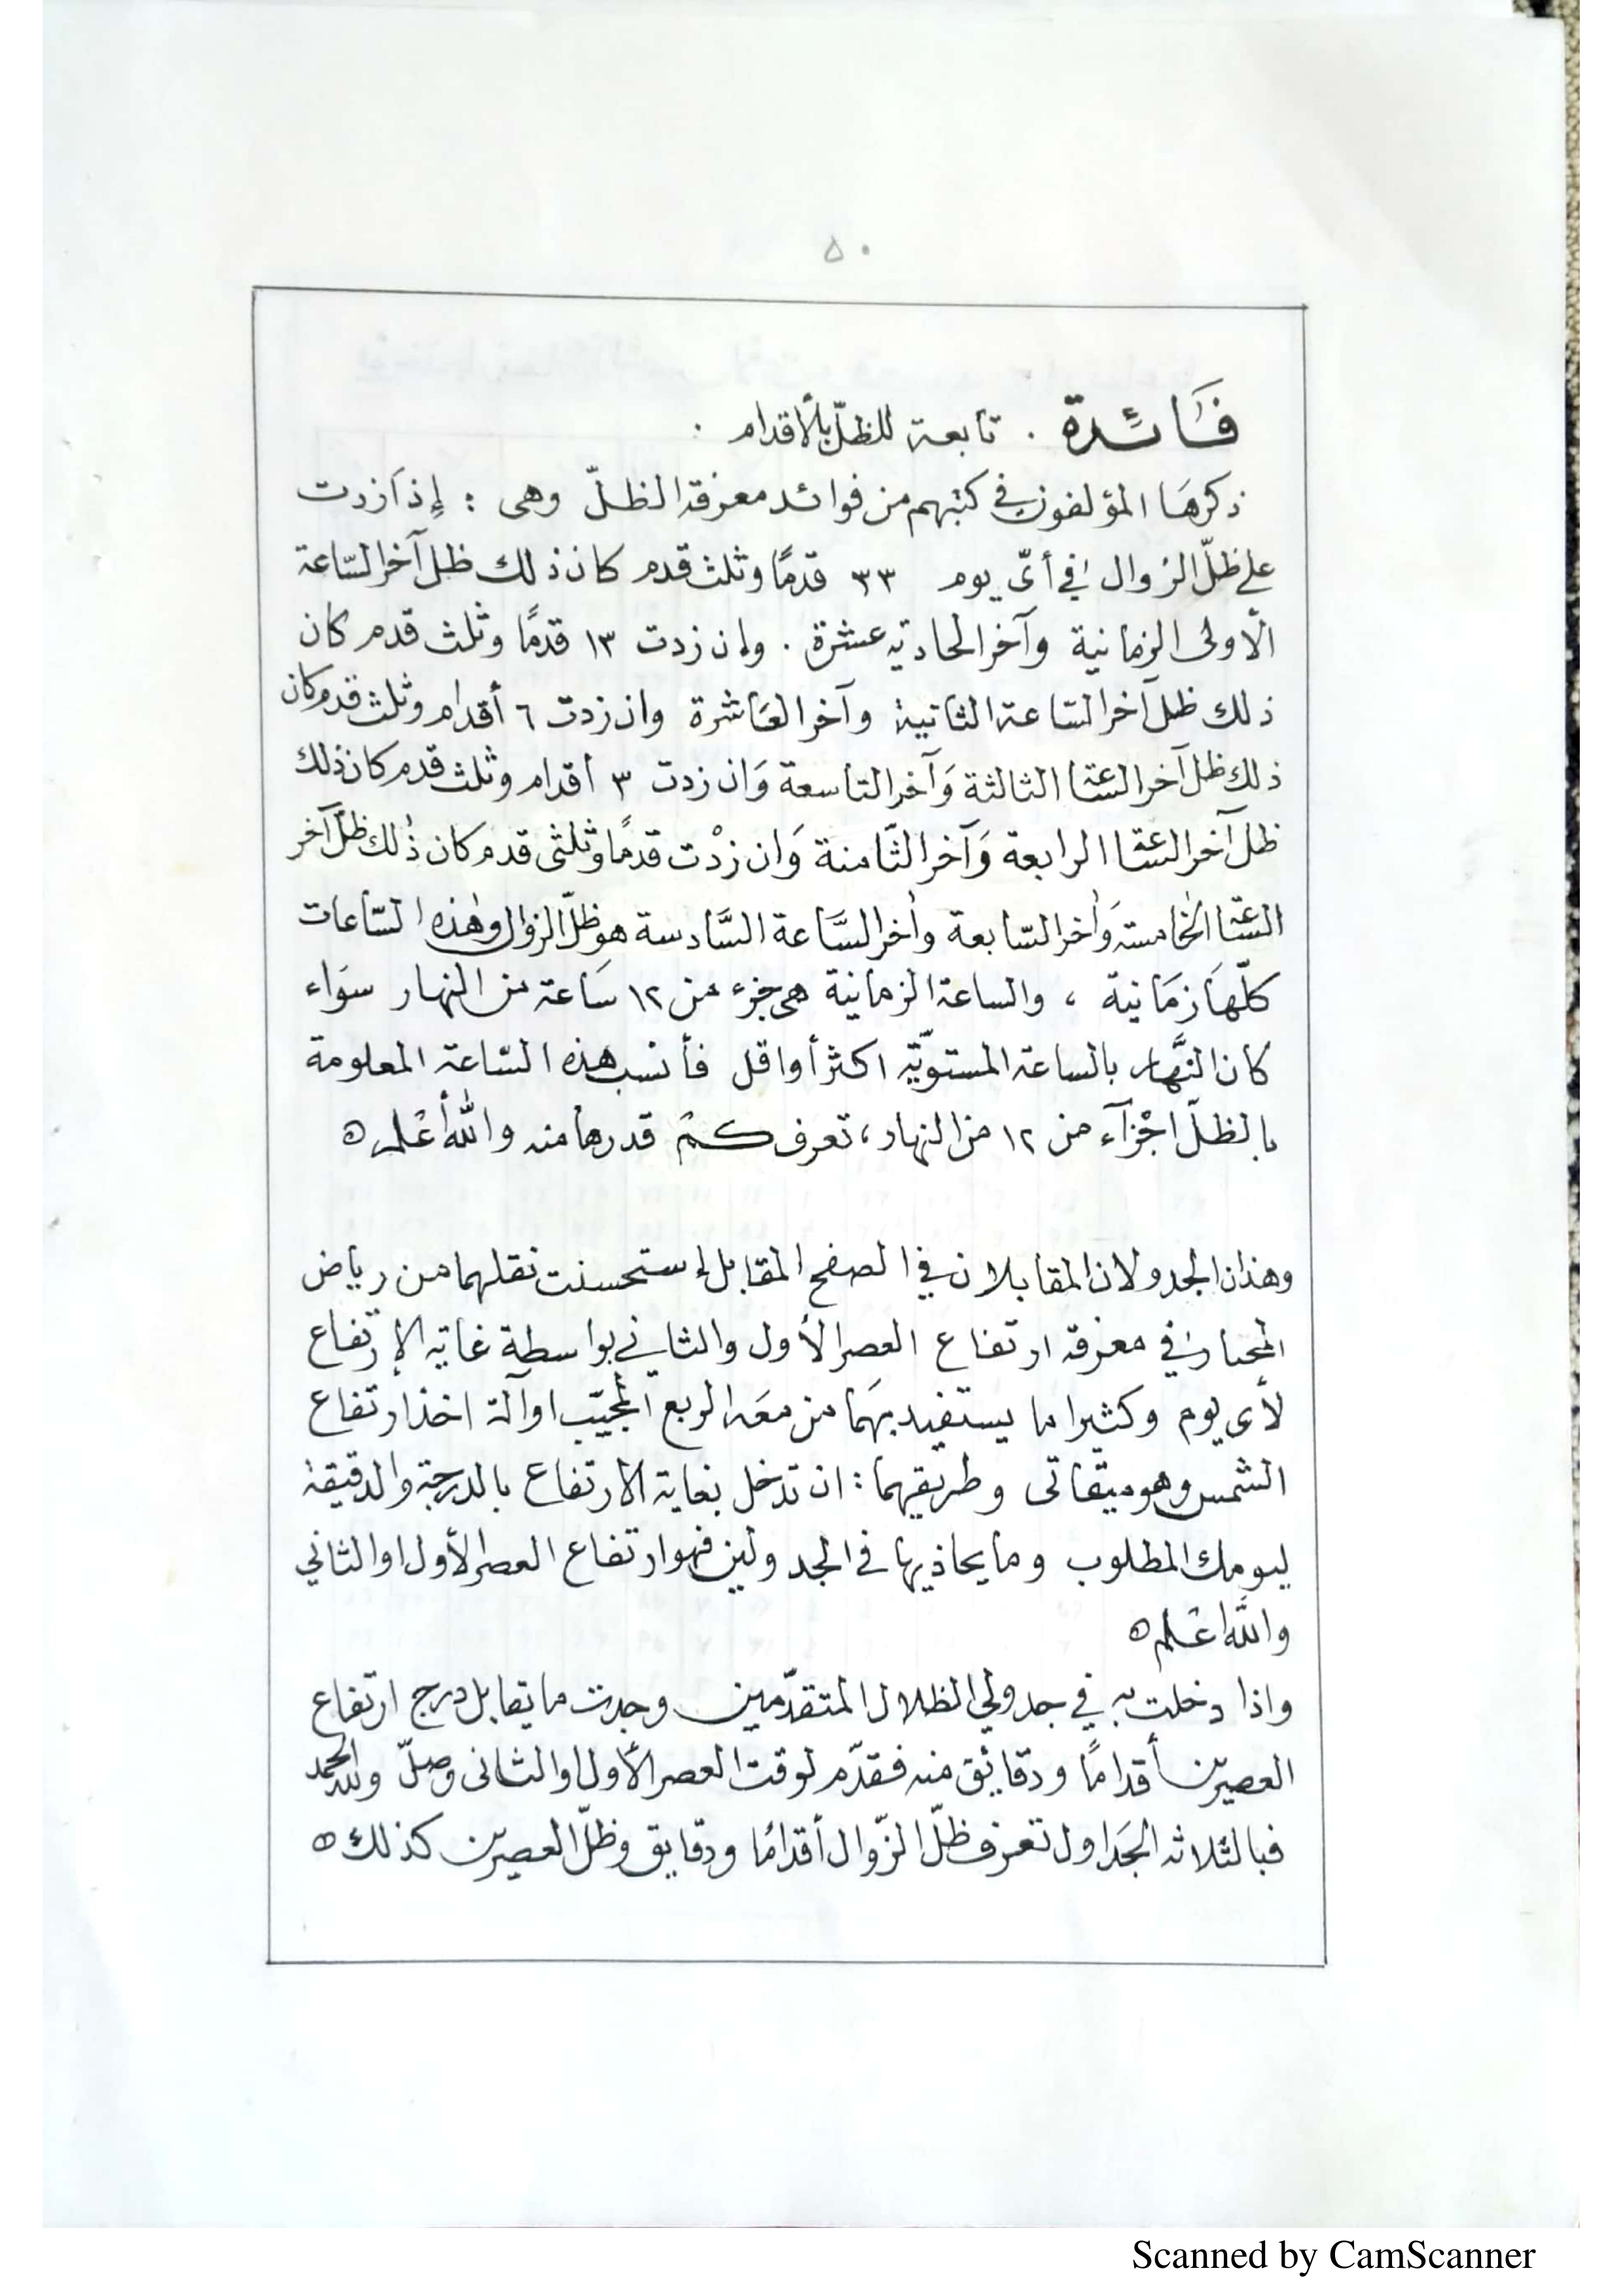 ٥٠
فَائدة . تابعة للظلّ بالأقدام .
ذكرهَا المؤلفون في كتبهم من فوائد معرفة الظلّ وهى : إِذا زدت
على ظلّ الزوال في أىّ يوم ٣٣ قدمًا وثلث قدم كان ذلك ظل آخر السّاعة
الأولى الزمانية وآخر الحادية عشرة . وإن زدت ١٣ قدمًا وثلث قدم كان
ذلك ظل آخر السّاعة الثانية وآخر العَاشرة وان زدت ٦ أقدام وثلث قدم كان
ذلك ظل آخر السّاعة الثالثة وَآخر التاسعة وَان زدت ٣ أقدام وثلث قدم كان ذلك
ظل آخر السّاعة الرابعة وَآخر الثّامنة وَان زدْت قدمًا وثلثى قدم كان ذلك ظلّ آخر
السّاعة الخامسة وَاخر السّابعة واخر السَّاعة السَّادسة هو ظلّ الزوال وهذه السّاعات
كلّهَا زمَانية ، والساعة الزمانية هى جزء من ١٢ سَاعة من النهار سوَاء
كان النَّهار بالساعة المستويّة اكثر أو اقل فأنسب هذه السّاعة المعلومة
بالظلّ اجْزآء من ١٢ من النهار ، تعرف كم قدرها منه والله أعْلم ه
وهذان الجدولان المقابلان في الصفح المقابل إستحسنت نقلهما من رياض
المختار في معرفة ارتفاع العصر الأول والثاني بواسطة غاية الإرتفاع
لأى يوم وكثيرا ما يستفيد بهَما من معَه الربع المجيّب او آلة اخذ ارتفاع
الشمس وهو ميقاتى وطريقهما : ان تدخل بغاية الارتفاع بالدرجة والدقيقة
ليومك المطلوب وما يحاذيها في الجدولين فهو ارتفاع العصر الأول او الثاني
والله اعْلم ه
واذا دخلت به في جدولي الظلال المتقدّمين وجدت ما يقابل درج ارتفاع
العصرين أقدامًا ودقائق منه فقدّم لوقت العصر الأول والثانى وصلّ ولله الحمد
فبالثلاثة الجَداول تعرف ظلّ الزّوال أقدامًا ودقايق وظلّ العصرين كذلك ه
Scanned by CamScanner